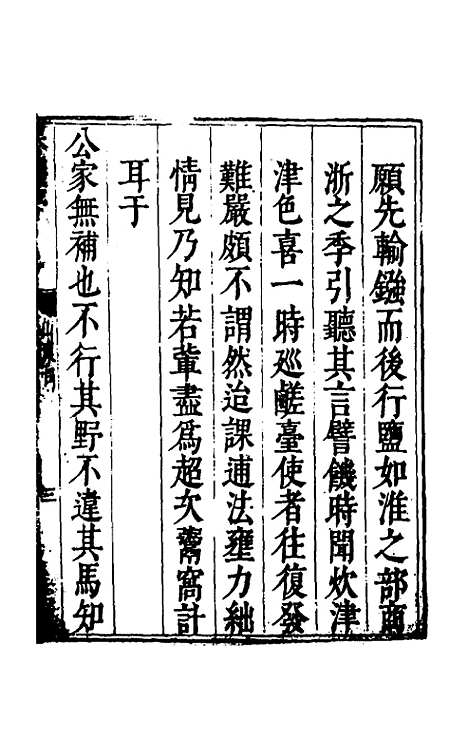 願先輸鏹而後行鹽如淮之部商
浙之季引聽其言譬饑時聞炊津
津色喜一時廵鹺臺使者往復發
難嚴頗不謂然迨課逋法壅力絀
情見乃知若輩盡爲超次鬻窩計
耳于
公家無補也不行其野不違其馬知